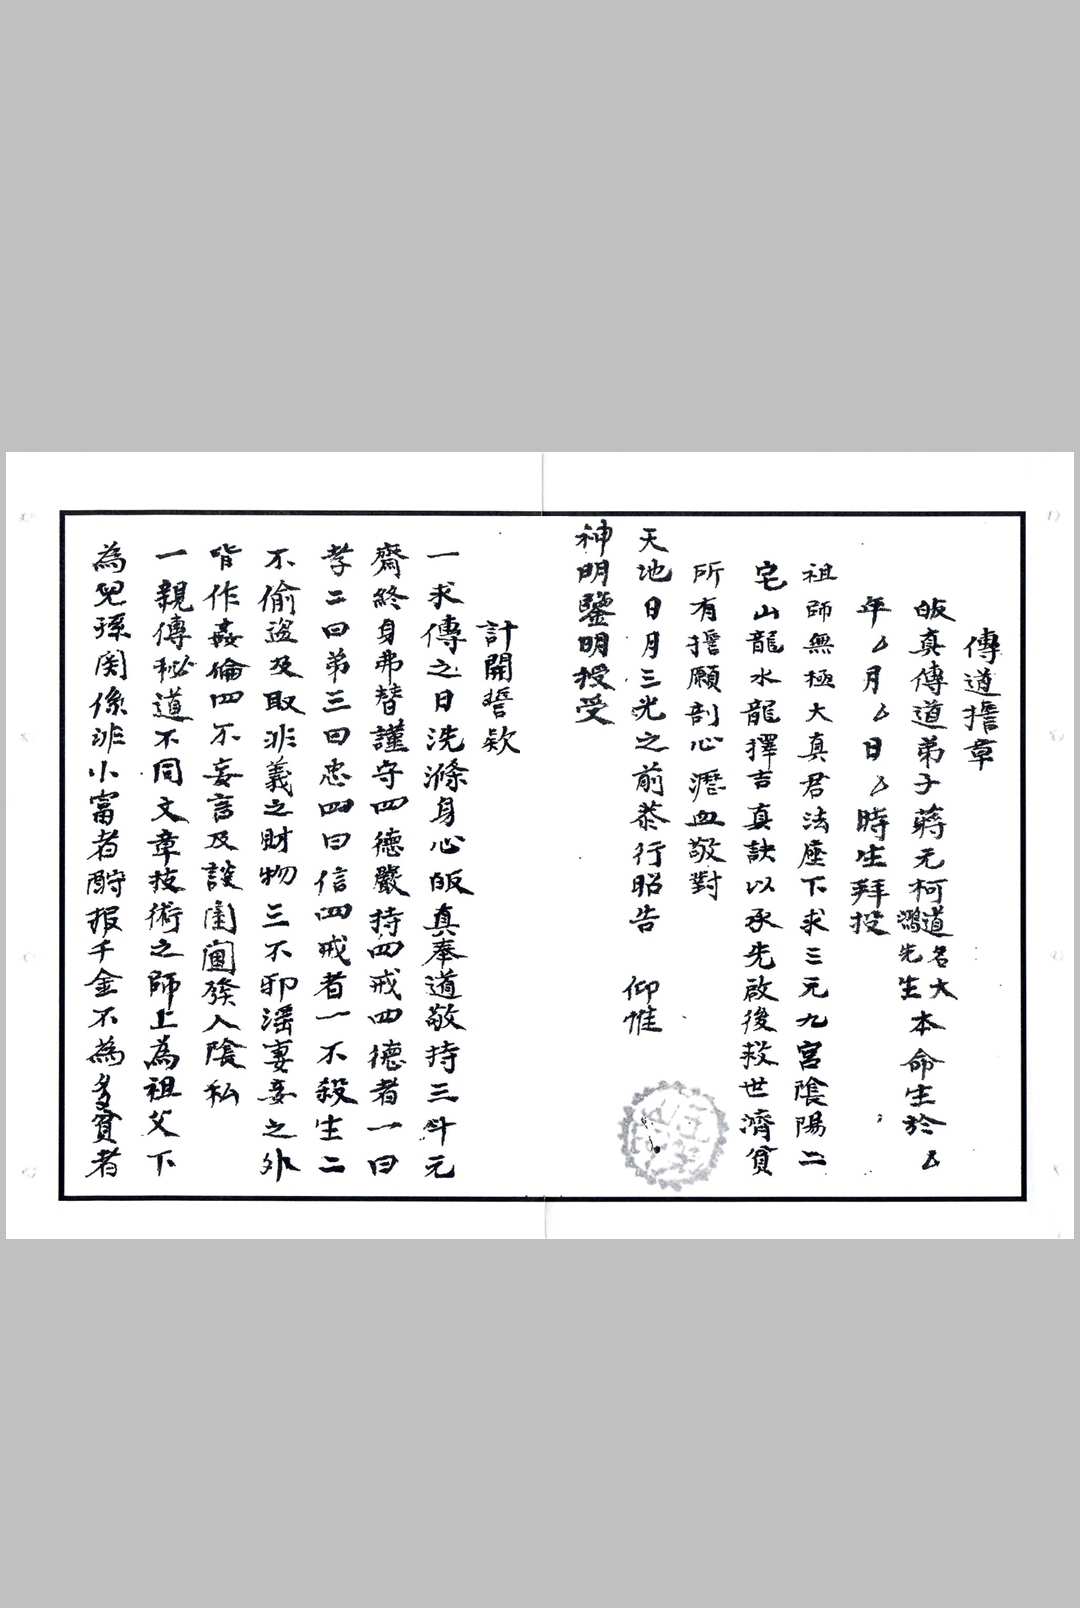 傳道擔章
皈真傳道弟子蔣元柯道名大鴻先生本命生於△
年△月△日△時生拜投
祖師無極大真君法座下求三元九宮陰陽二
宅山龍水龍擇吉真訣以承先啟後救世濟貧
所有擔願剖心瀝血敬對
天地日月三光之前恭行昭告 仰惟
神明鑒明授受
計開誓欵
一求傳之日洗滌身心皈真奉道敬持三斗元
齋終身弗替謹守四德嚴持四戒四德者一曰
孝二曰弟三曰忠四曰信四戒者一不殺生二
不偷盜及取非義之財物三不邪淫妻妾之外
皆作姦倫四不妄言及談閨闥發人陰私
一親傳秘道不同文章技術之師上為祖父下
為兒孫関係非小富者酧报千金不為多貧者